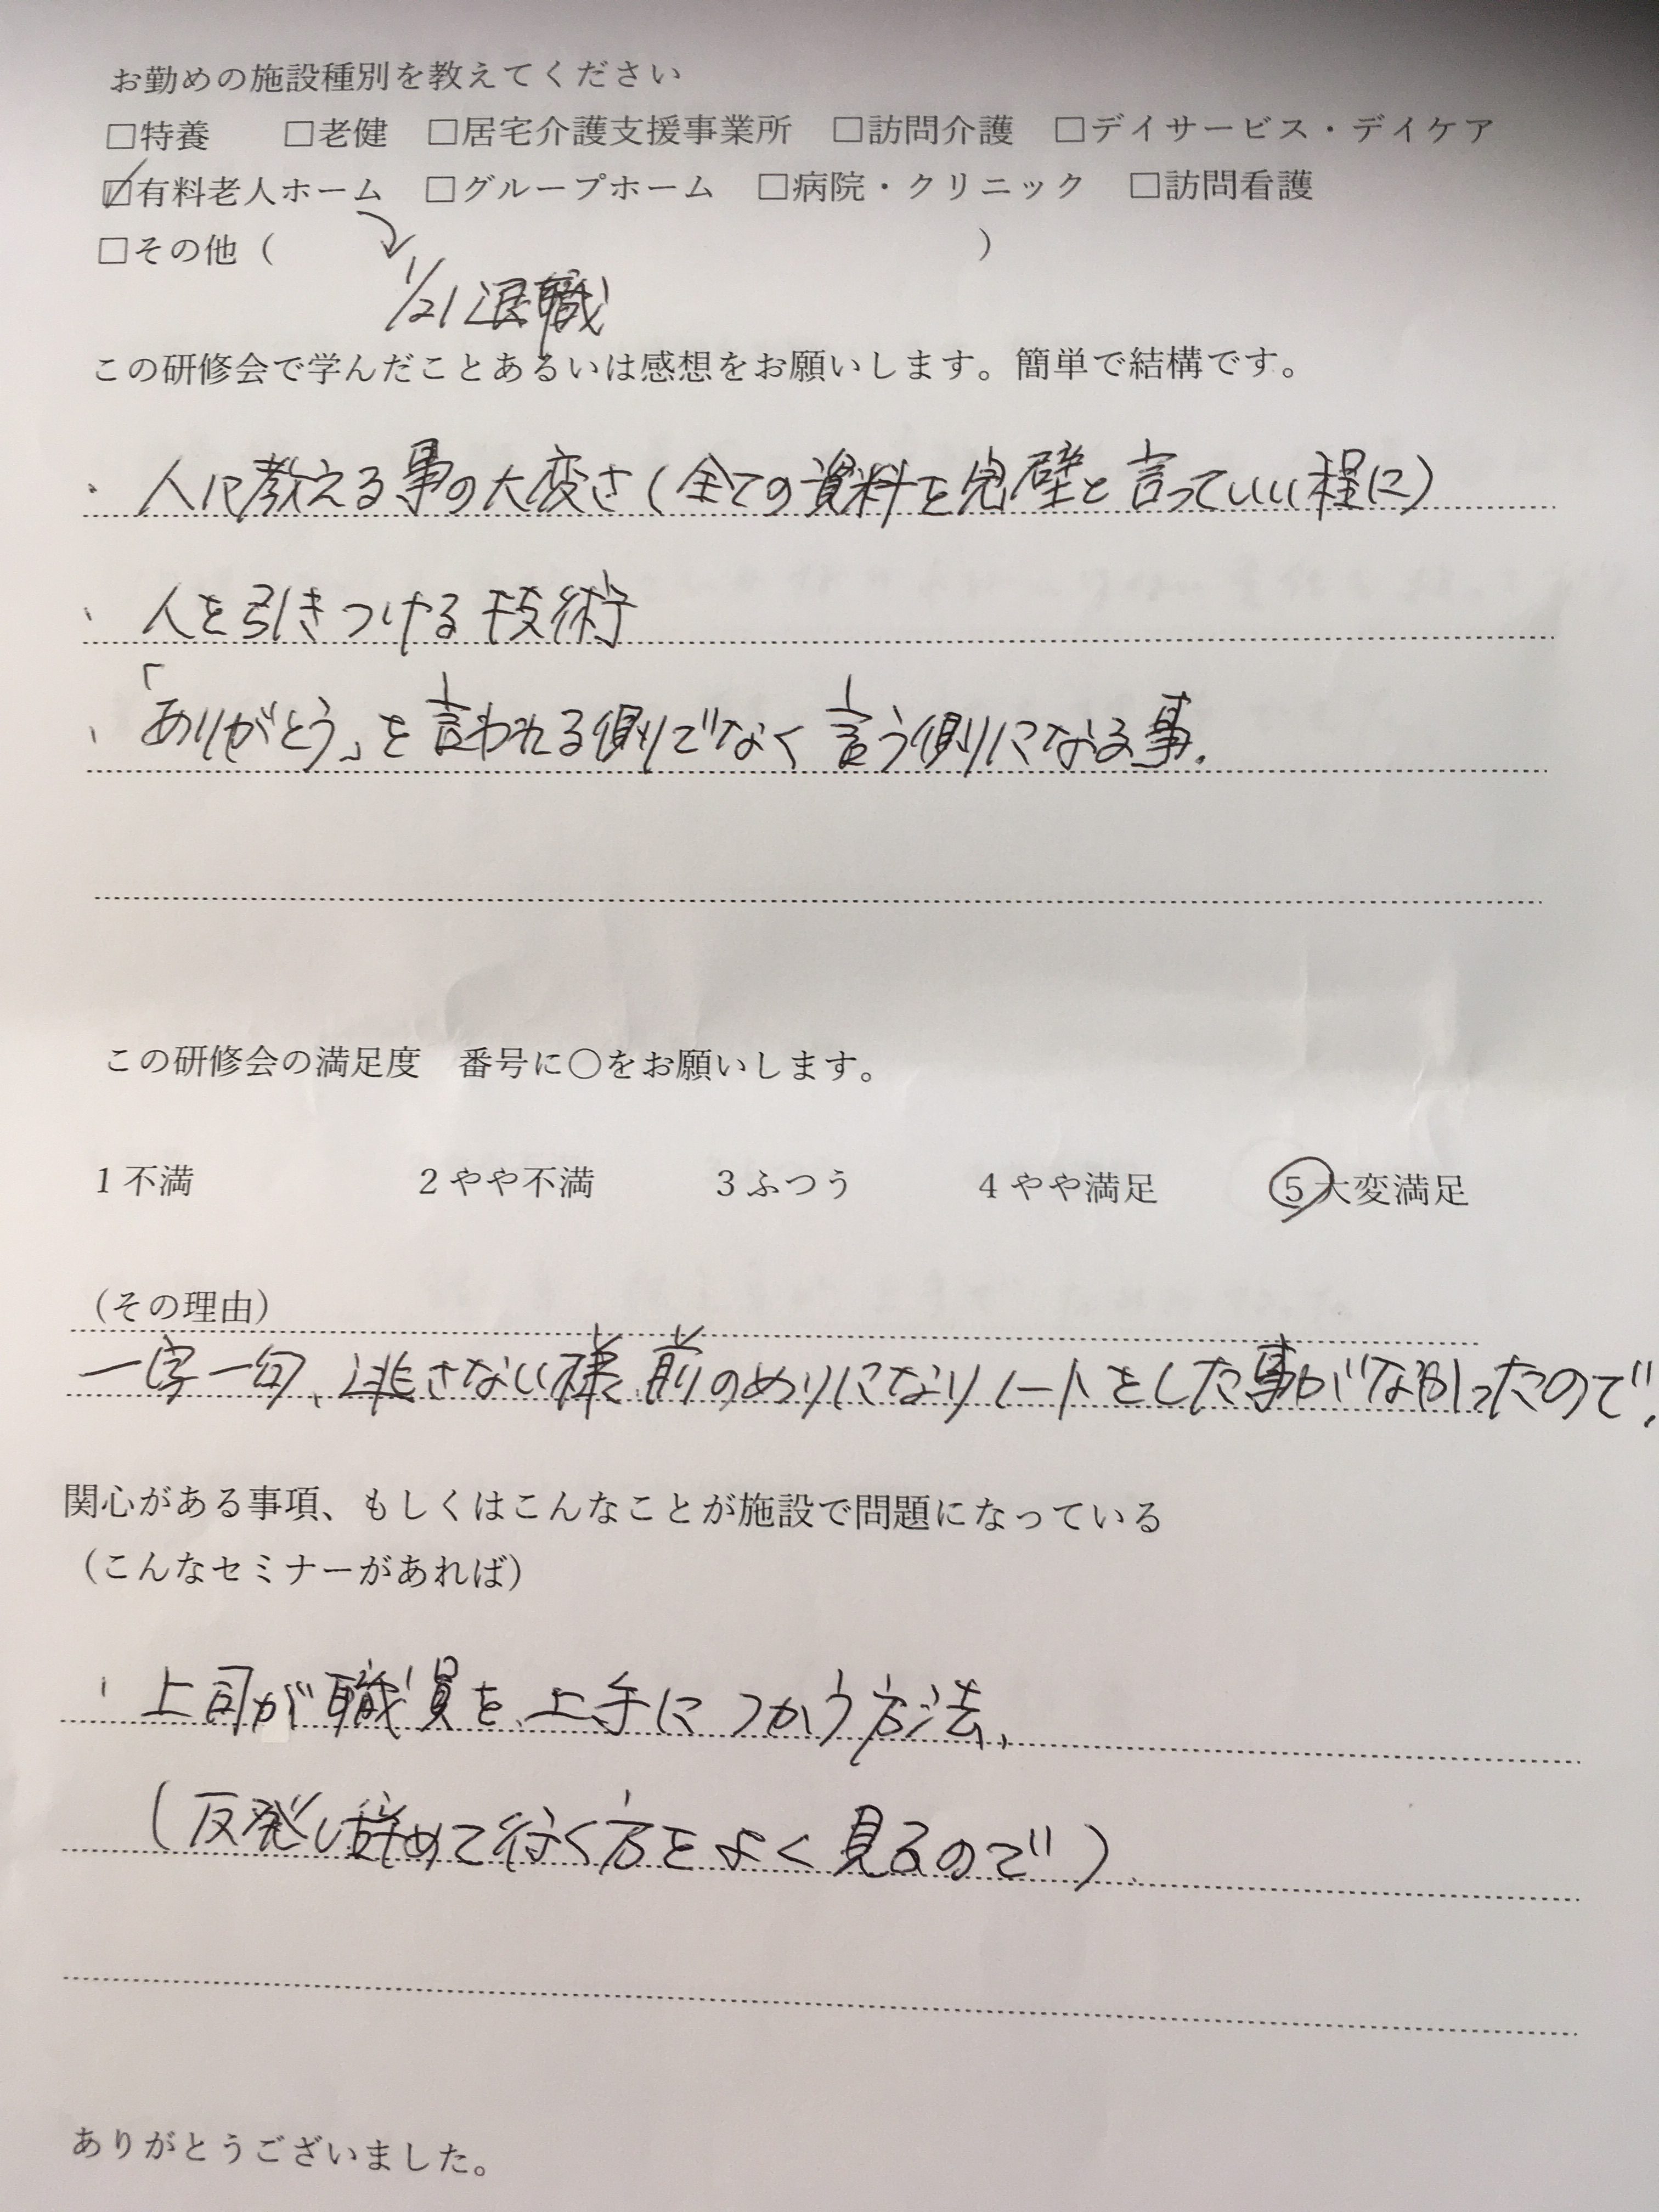 お勤めの施設種別を教えてください
□特養　□老健　□居宅介護支援事業所　□訪問介護　□デイサービス・デイケア
☑有料老人ホーム　□グループホーム　□病院・クリニック　□訪問看護
□その他（　　　）
1/21退職
この研修会で学んだことあるいは感想をお願いします。簡単で結構です。
・人に教える事の大変さ(全ての資料を完璧と言っていい程に)
・人を引きつける技術
・「ありがとう」を言われる側でなく言う側になる事.
この研修会の満足度　番号に〇をお願いします。
1 不満　2 やや不満　3 ふつう　4 やや満足　⑤ 大変満足
（その理由）
一字一句、逃さない様、前のめりになりノートをした事がなかったので.
関心がある事項、もしくはこんなことが施設で問題になっている
（こんなセミナーがあれば）
・上司が職員を、上手につかう方法、
(反発し辞めて行く方をよく見るので).
ありがとうございました。